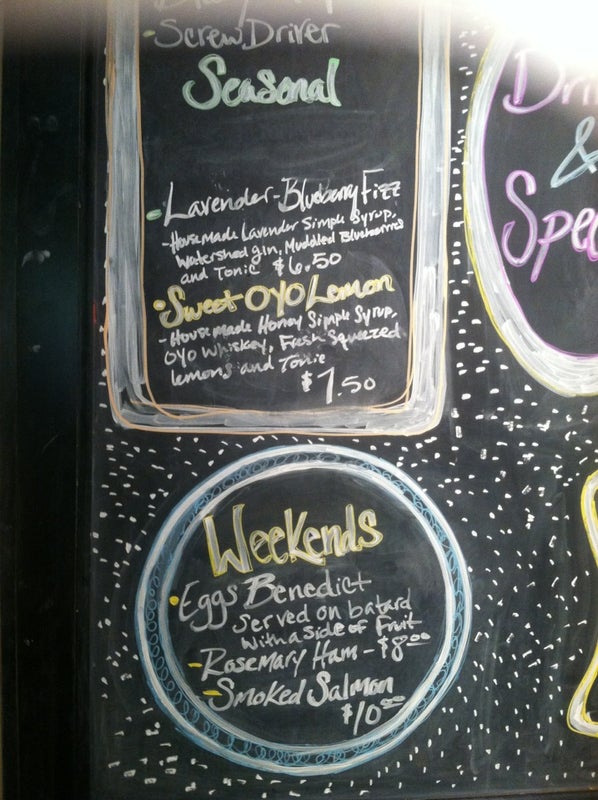 ScrewDriver
Seasonal
Lavender-Blueberry Fizz
-Housemade Lavender Simple Syrup,
Watershed gin, Muddled Blueberries
and Tonic $6.50
Sweet OYO Lemon
-Housemade Honey Simple Syrup,
OYO Whiskey, Fresh Squeezed
lemons and Tonic
$7.50
Weekends
Eggs Benedict
Served on batard
with a side of Fruit
-Rosemary Ham-$8.00
-Smoked Salmon
$10.00
&